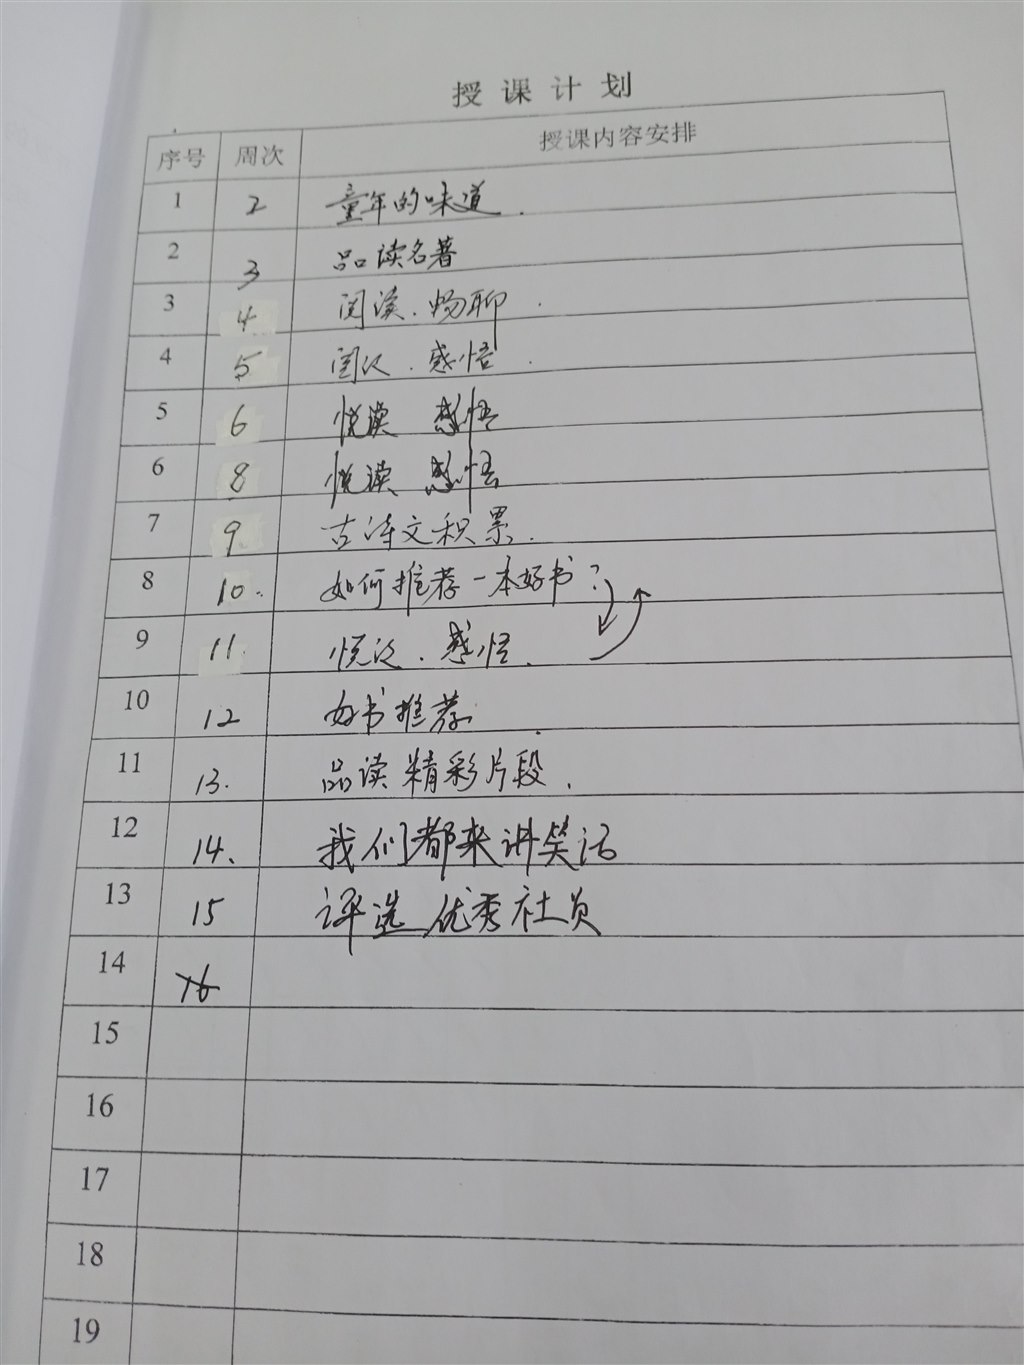 授课计划
序号 周次 授课内容安排
1 2 童年的味道.
2 3 品读名著
3 4 阅读.畅聊.
4 5 阅读.感悟.
5 6 悦读 感悟
6 8 悦读 感悟
7 9 古诗文积累.
8 10. 如何推荐一本好书?
9 11. 悦读.感悟.
10 12 好书推荐.
11 13. 品读精彩片段.
12 14. 我们都来讲笑话
13 15 评选优秀社员
14 16
15
16
17
18
19